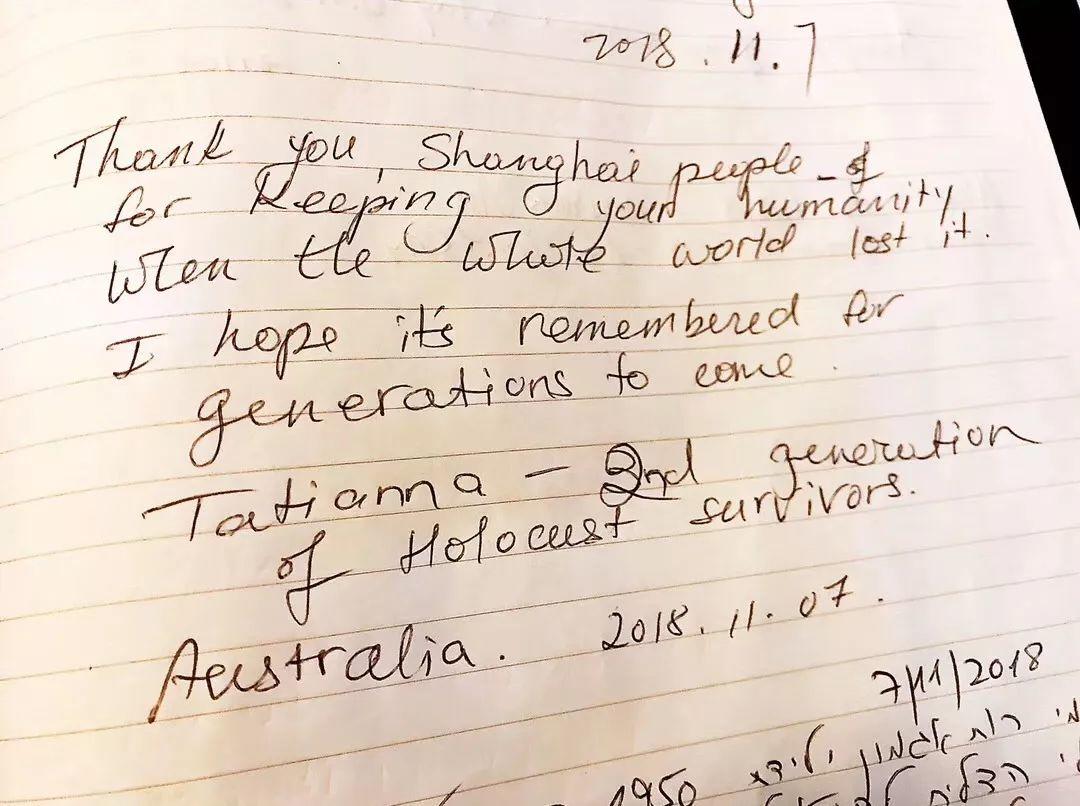 2018.11.7
Thank you, Shanghai people
for keeping your humanity
when the whole world lost it.
I hope it's remembered for
generations to come.
Tatianna – 2nd generation
of Holocust survivors.
Australia. 2018.11.07.
7/11/2018
1950